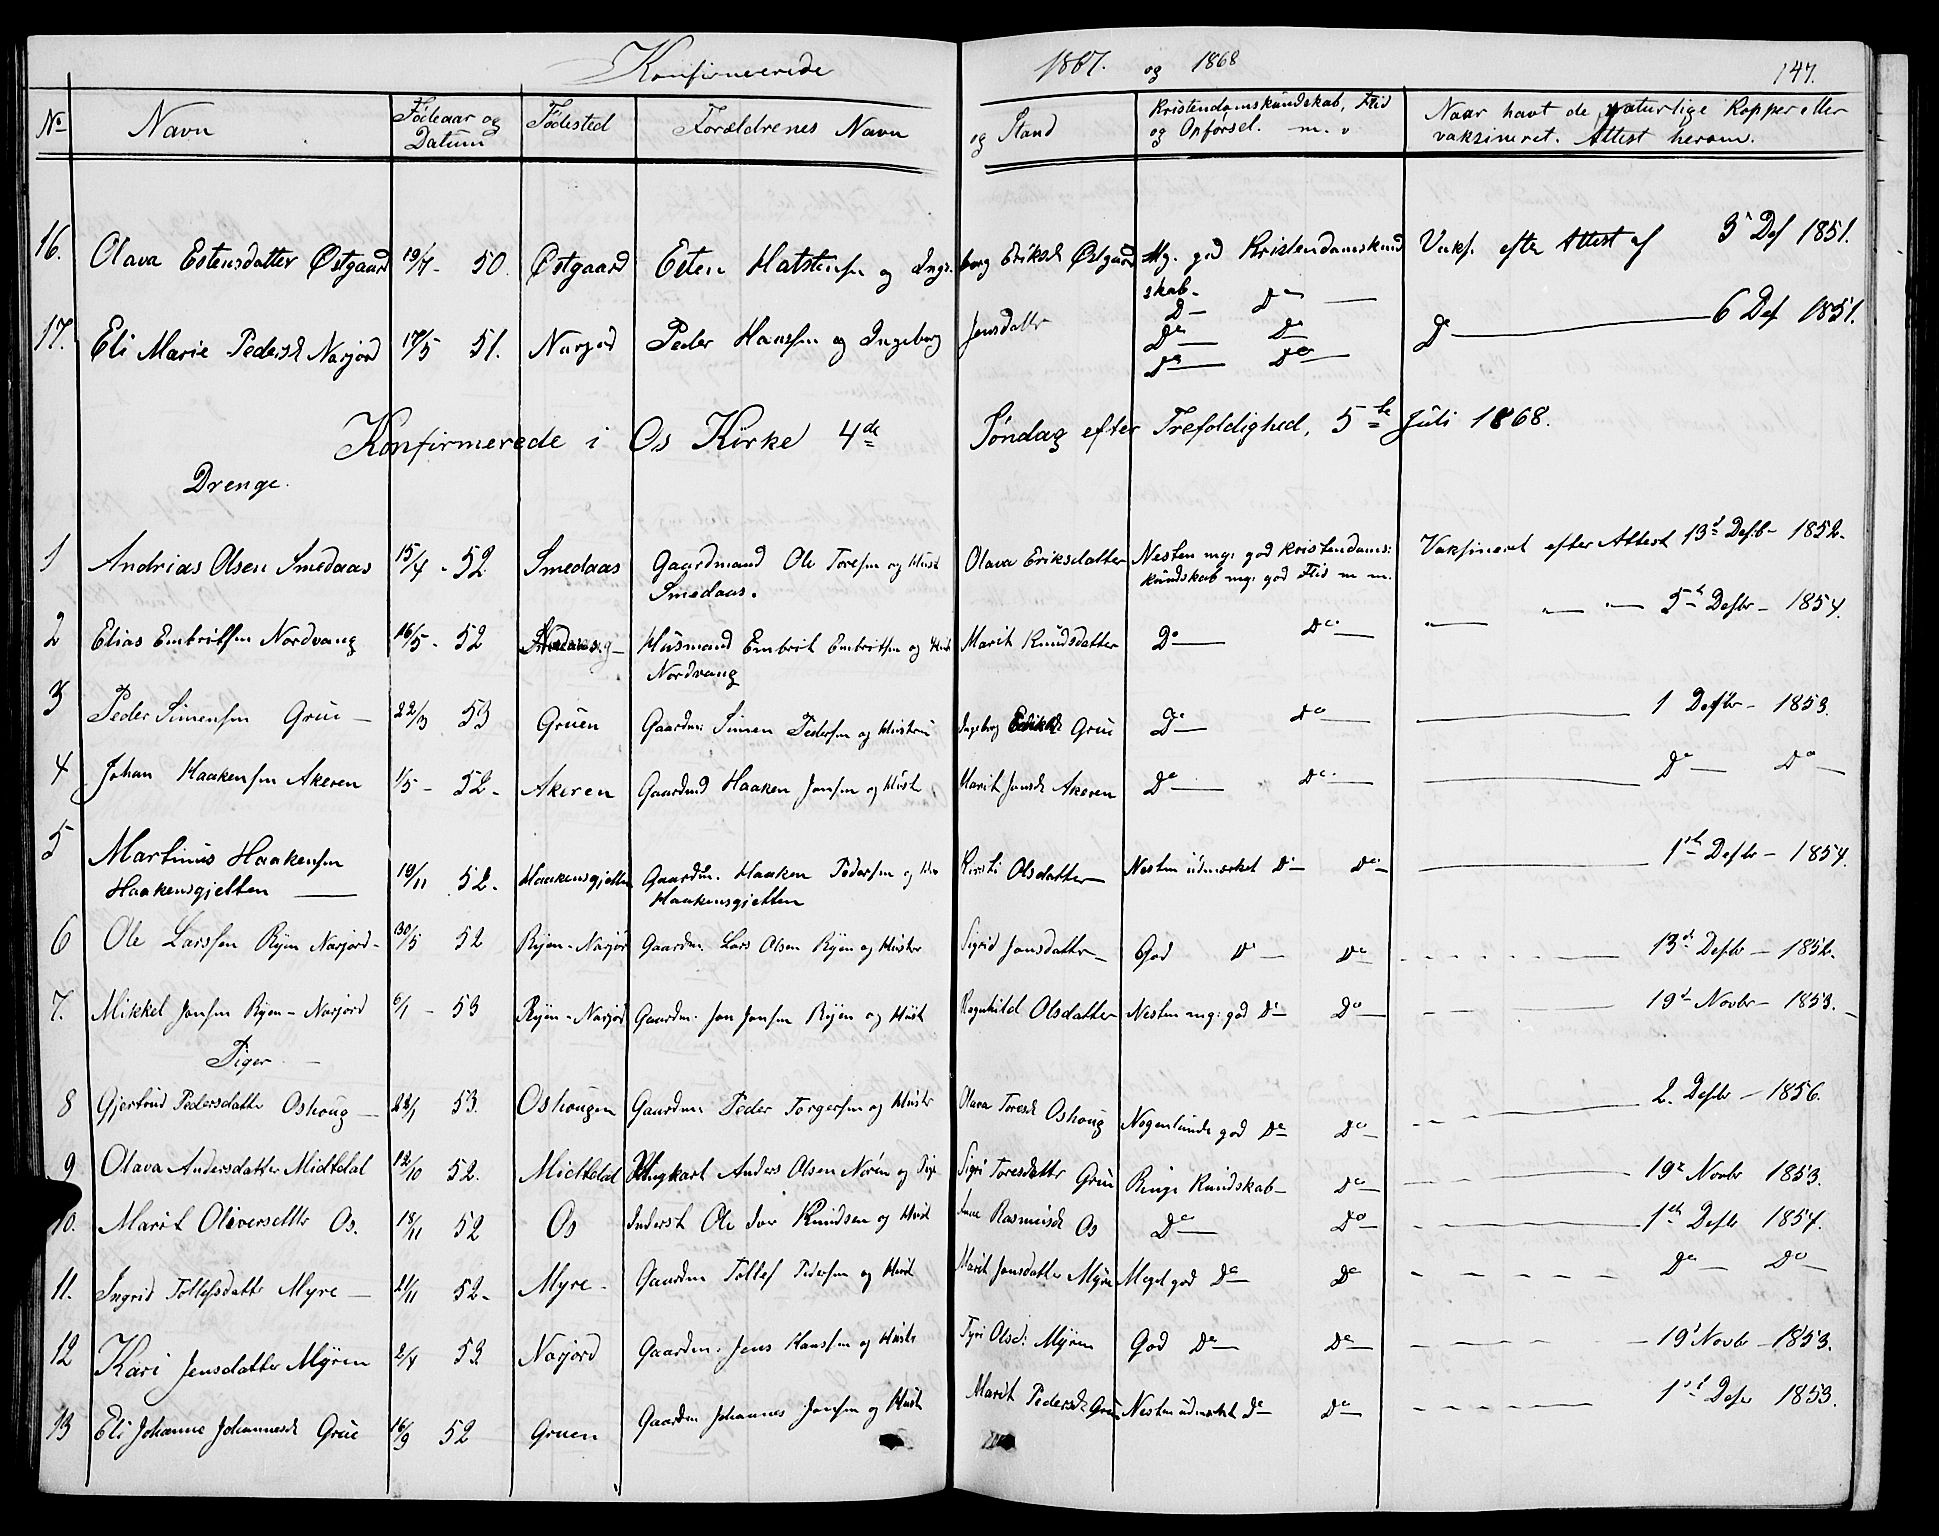 Konfirmerede 1867. og 1868 147.
No Navn Fødeaar og Datum Fødested Forældrenes Navn og Stand Kristendomskundskab, Flid og Opførsel. m. v Naar havt de naturlige Kopper eller vaksineret. Attest herom.
16. Olava Estensdatter Østgaard 19/7 - 50. Østgaard Esten Hatstensen og Ingeborg Eriksd Østgaard Mg. god Kristendomskundskab- Vaks. efter Attest af 3 Des 1851.
D- Do -
17. Eli Marie Pedersd Narjord 17/5 51. Narjord Peder Hanssen og Ingeborg Jensdattr Do Do Do 6 Des 1851.
Do Do
Konfirmerede i Os Kirke 4de Søndag efter Trefoldighed, 5te Juli 1868.
Drenge.
1 Andrias Olsen Smedaas 15/4 - 52 Smedaas Gaardmand Ole Toresen og Hust Smedaas. Olava Eriksdatter Nesten mg: god Kristendoms: kundskab mg: god Flid m m. Vaksineret efter Attest 13d Desb - 1852.
2 Elias Embritsen Nordvang 16/5 - 52 Husmand Embrit Embritsen og Hust Nordvang Marit Knudsdatter Do Do 5d Desbr - 1854.
3 Peder Simensen Grue - 22/3 53 Gruen Gaardm: Simen Pedersen og Hustru Ingeborg Grue Do Do 1 Desbr - 1853.
4 Johan Haakensen Akeren 1/5 - 52- Akeren Gaardmd Haaken Jonsen og Hust Marit Jonsd Akeren Do Do Do Do
5 Martinus Haakensen Haakensgjetten 19/11 52- Haakensgjetten Gaardm. Haaken Pedersen og Hus Haakensgjetten Kirsti Olsdatter Nesten udmærket Do Do 1st Desbr - 1854.
6 Ole Larssen Ryen Narjord- 30/5 52 Ryen-Narjor Gaardm. Lars Olsen Ryen og Hustr Sigrid Jonsdattr God Do Do 13d Desbr - 1852.
7. Mikkel Jonsen Ryen-Narjord 6/1 - 53 Ryen-Narjord Gaardm. Jon Jonsen Ryen og Hust Ragnhild Olsdatter Nesten mg: god Do Do 19d Novbr - 1853.
Piger
8 Gjertrud Pedersdattr Oshoug 28/1 53. Oshougen Gaardm. Peder Torgersen og Hustr Olava Toresd Oshoug Nogenlunde god Do Do 2. Desbr - 1856.
9 Olava Andersdatter Midtdal 12/10 52. Midtdal Ungkarl Anders Olsen Norén og Pige Sigri Toresdattr Grue Ringe Kundskab- Do 19d Novbr 1853.
10. Marit Oliversdttr Os. 18/11 52 Os Inderst Ole Iver Knudsen og Hust Anne Rasmusd Os Do Do 1st Desbr 1854.
11. Ingrid Tollefsdattr Myre 21/11 52- Myre- Gaardm Tollef Pedersen og Hust Marit Jonsdatter Myre Meget god Do Do Do Do
12 Kari Jensdatter Myren 2/4 53 Narjord Gaardm. Jens Hanssen og Hustr Tyri Olsd: Myren God Do Do 19d Novbr - 1853.
13 Eli Johanne Johannesd Grue 16/9 52 Gruen Gaardm Johannes Jonsen og Hust Marit Pedersd Grue Nesten udmrket Do Do 1st Desr 1853.